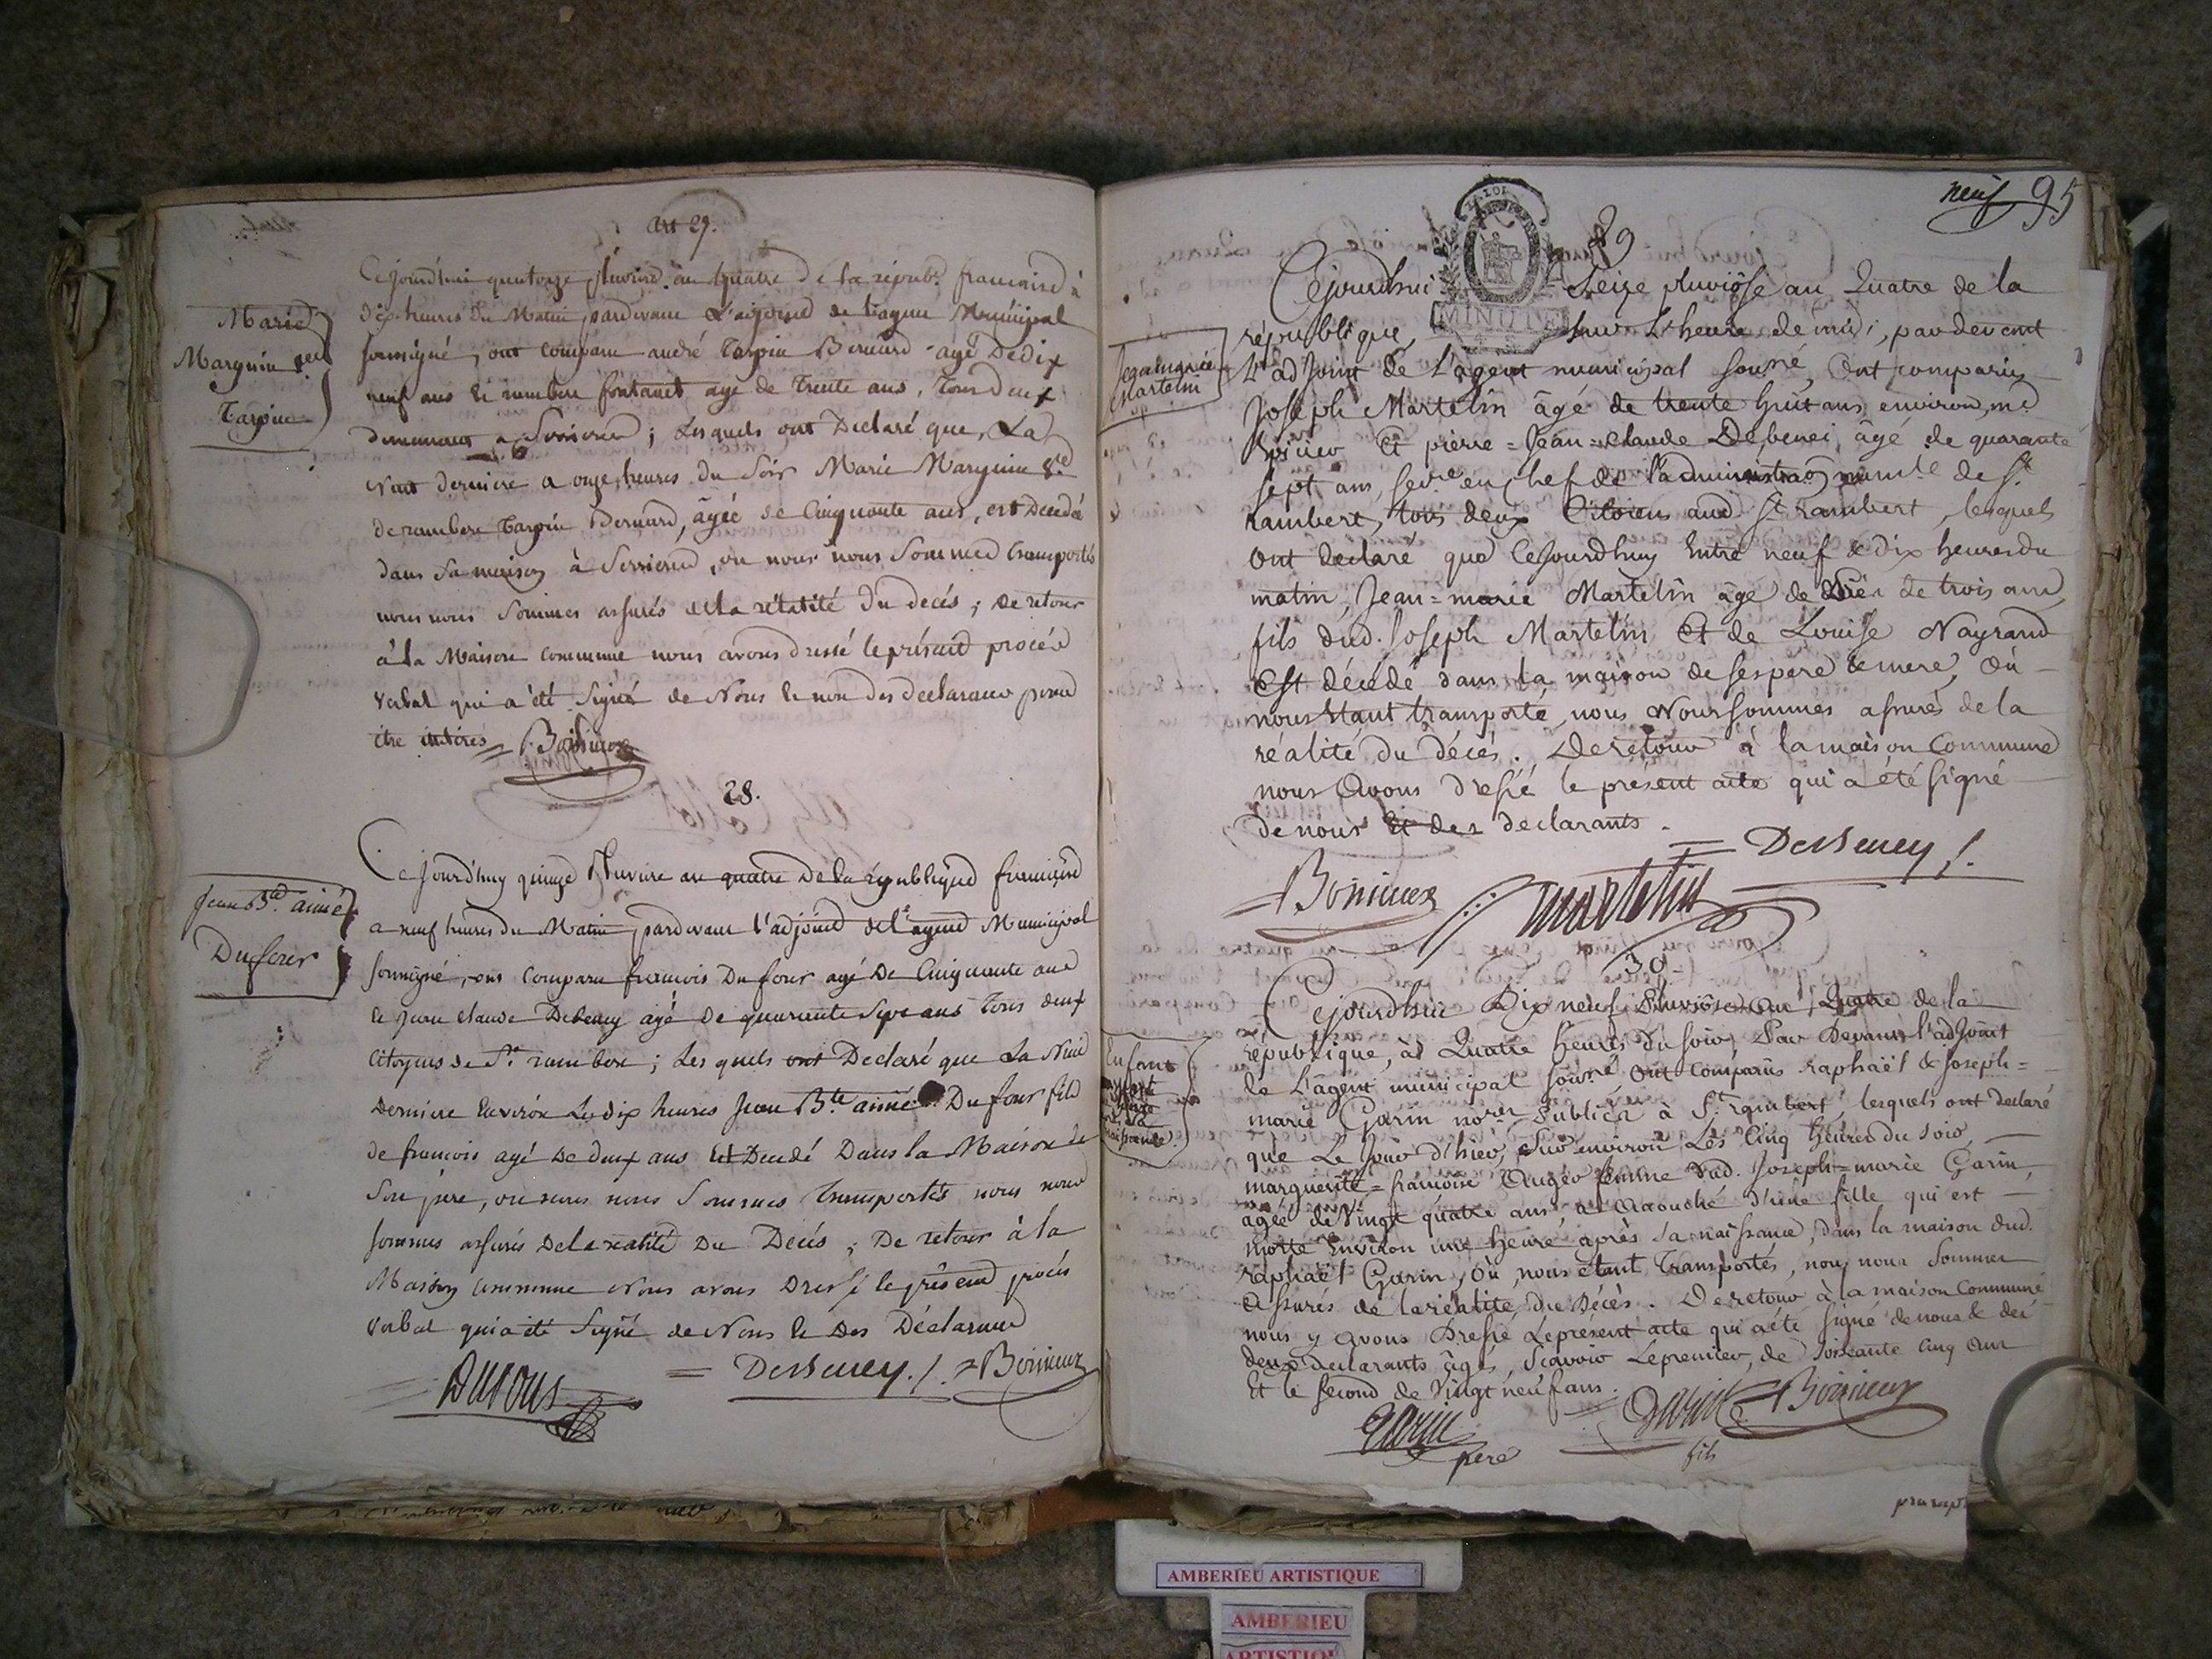 art 27.
Marie
Marguin v.e
Tarpin
Cejourdhui quatorze pluviose an quatre de la répub.e francaise à
dix heures du Matin, pardevant L'adjoint de L'agent Municipal
soussigné, ont comparu andré Tarpin Bernard agé De dix
neuf ans et rambert fontanet age de Trente ans, Tous deux
demeurant a Serrieres; Lesquels ont Declaré que, La
Nuit derniere a onze heures du Soir Marie Marguin v.e
de rambert Tarpin Bernard, âgée de Cinquante ans, est Decedée
dans Sa maison à Serrieres, ou nous nous Sommes transportés
nous nous Sommes assurés de la réalité du decés; de retour
à la Maison commune nous avons dressé le présent procés
verbal qui a été Signé de Nous et non des déclarans pour
être illitérés = Bonnieux
28.
Jean B.te aimé
Dufour
Ce jourd'huy quinze Pluviose an quatre de la république françaïse
a neuf heures du Matin, pardevant l'adjoint de l'agent Municipal
soussigné, ont comparu francois Dufour agé De Cinquante ans
et Jean claude Debeney agé de quarente Sept ans Tous deux
Citoyens de St rambert; Les quels ont Declaré que La Nuit
Derniere Environ Les dix heures Jean B.te aimé Dufour fils
de francois agé de deux ans est Decedé Dans la Maison de
Son pere, ou nous nous Sommes Transportés nous nous
sommes assurés De la réalité Du Decés; De retour à la
Maison Commune Nous avons Dressé le présent procés
verbal qui a été Signé de Nous et Des Déclarans
= Dufour = Debeney./. = Bonnieux
neuf 95
29
MINUTE
Jean marie
Martelin
Cejourdhui Seize pluviôse an Quatre de la
république, sur L'heure de midi, par devant
L'adjoint de L'agent municipal sousné, Ont comparus
Joseph Martelin âgé de trente huit ans environ, m.d
Et pierre = Jean = claude Debenei âgé de quarante
sept ans, secre en chef de l'administraon munle de St
rambert, tous deux Citoiens aud. St rambert, lesquels
Ont declaré que Cejourdhuy Entre neuf & dix heures du
matin, Jean = marie Martelin âgé de de trois ans
fils dud. Joseph Martelin Et de Louise Nayrand
Est décédé dans la maison de ses pere & mere, Où
nous étant transporté, nous Nous sommes assurés de la
réalité du décés. De retour à la maison Commune
nous Avons dressé le présent acte qui a été signé
de nous Et des declarants.
= Debeney ./.
= Bonnieux martelin
30
Enfant
morte
naissance.
Cejourdhui Dix neuf Pluviôse an Quatre de la
république, à Quatre heures du soir, Par Devant l'adjoint
de L'agent municipal sousné Ont comparus raphaël & Joseph =
marie Garin nores Publics à St rambert, lesquels ont declaré
que Le jour d'hier, Sur environ Les Cinq heures du soir,
marguerite = francoise Augér femme dud. Joseph = marie Garin,
agée de Vingt quatre ans a Accouché d'une fille qui est
morte Environ une heure après sa naissance, dans la maison dud.
raphaël Garin, Où nous étant Transportés, nous nous Sommes
Assurés de la réalité du Décès. De retour à la maison Commune
nous y Avons Dressé Le présent acte qui a été signé de nous & des
deux declarants âgés, Scavoir Le premier, de soixante cinq ans
Et le second de Vingt neuf ans.
Garin
pere
= Garin
fils
= Bonnieux
AMBERIEU ARTISTIQUE
AMBERIEU
ARTISTIQUE